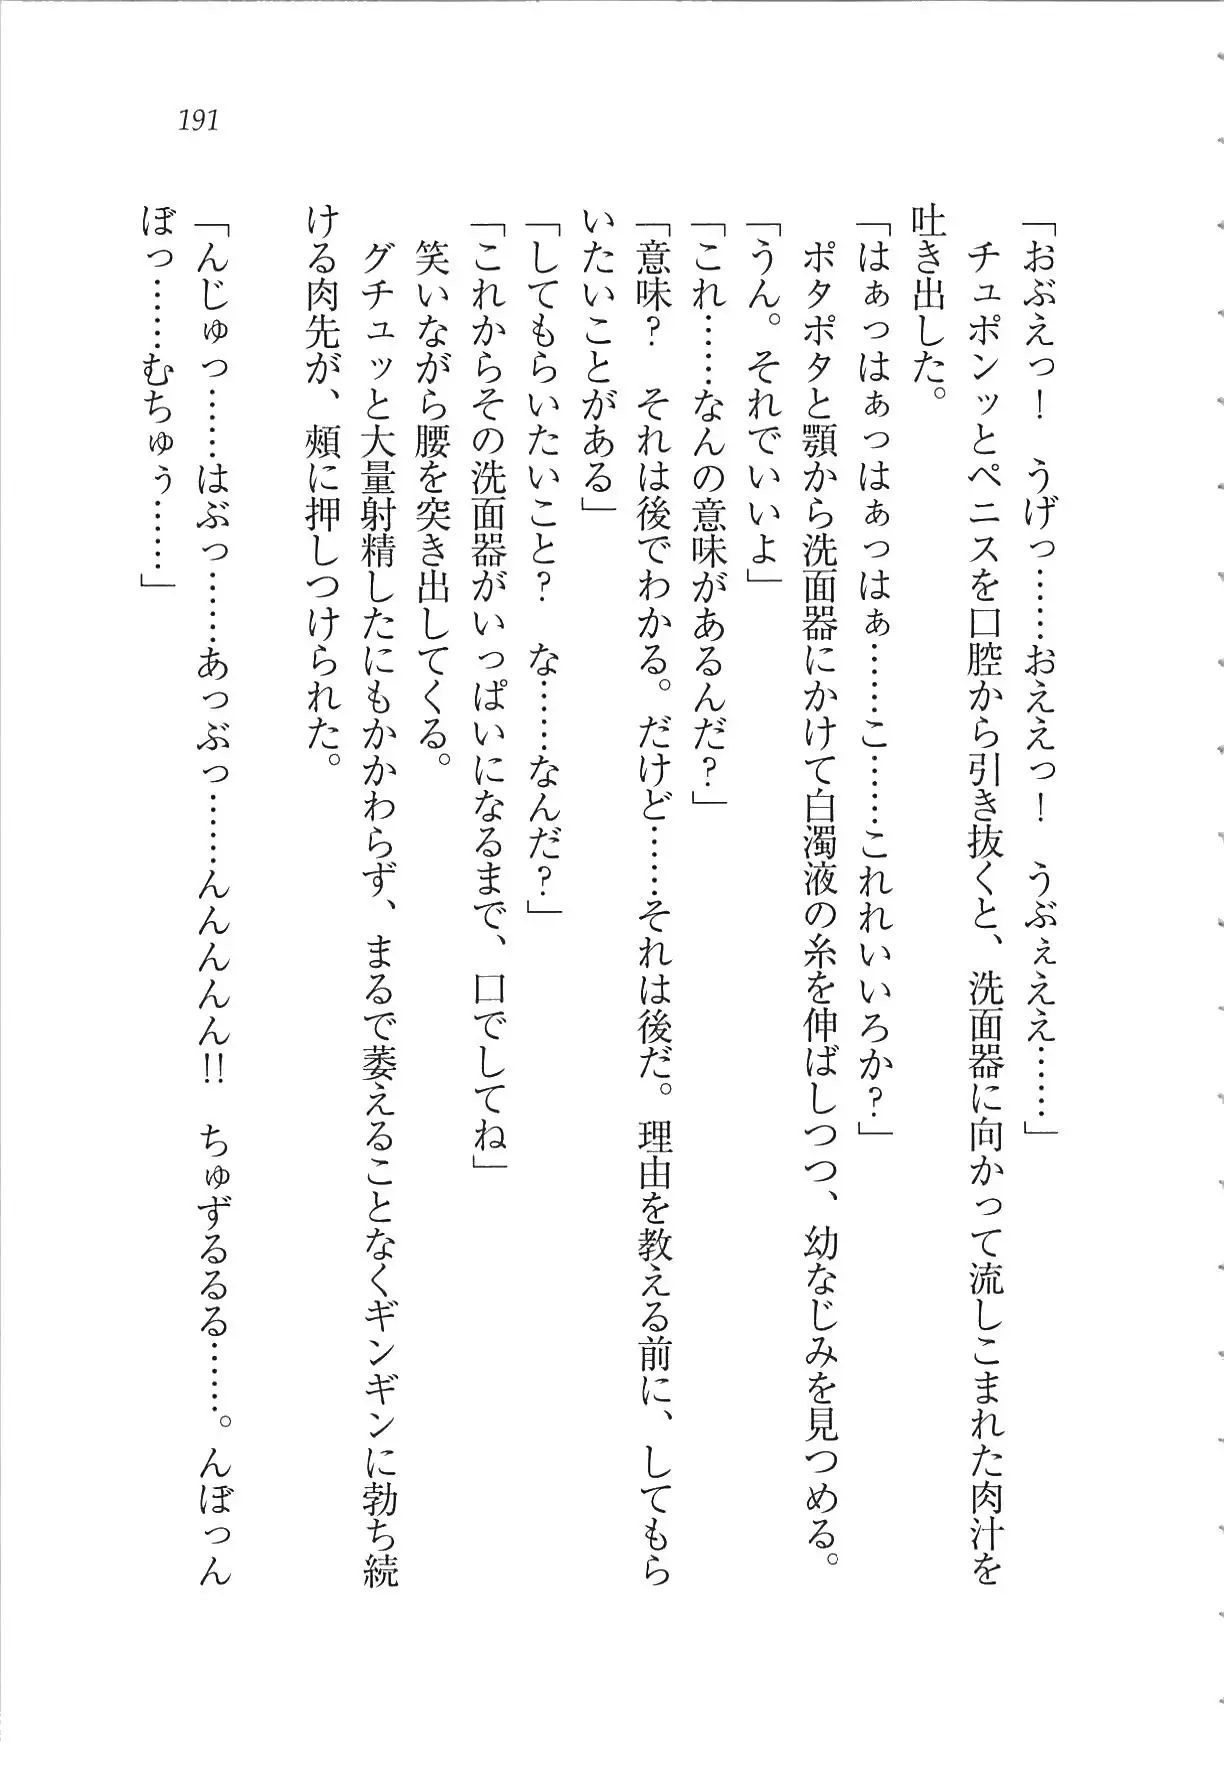 191
「おぶえっ！　うげっ……おええっ！　うぶぇええ……」
　チュポンッとペニスを口腔から引き抜くと、洗面器に向かって流しこまれた肉汁を
吐き出した。
「はぁっはぁっはぁっはぁ……こ……これれいいろか？」
　ポタポタと顎から洗面器にかけて白濁液の糸を伸ばしつつ、幼なじみを見つめる。
「うん。それでいいよ」
「これ……なんの意味があるんだ？」
「意味？　それは後でわかる。だけど……それは後だ。理由を教える前に、してもら
いたいことがある」
「してもらいたいこと？　な……なんだ？」
「これからその洗面器がいっぱいになるまで、口でしてね」
　笑いながら腰を突き出してくる。
　グチュッと大量射精したにもかかわらず、まるで萎えることなくギンギンに勃ち続
ける肉先が、頰に押しつけられた。
「んじゅっ……はぶっ……あっぶっ……んんんんん!!　ちゅずるるる……。んぼっん
ぼっ……むちゅぅ……」